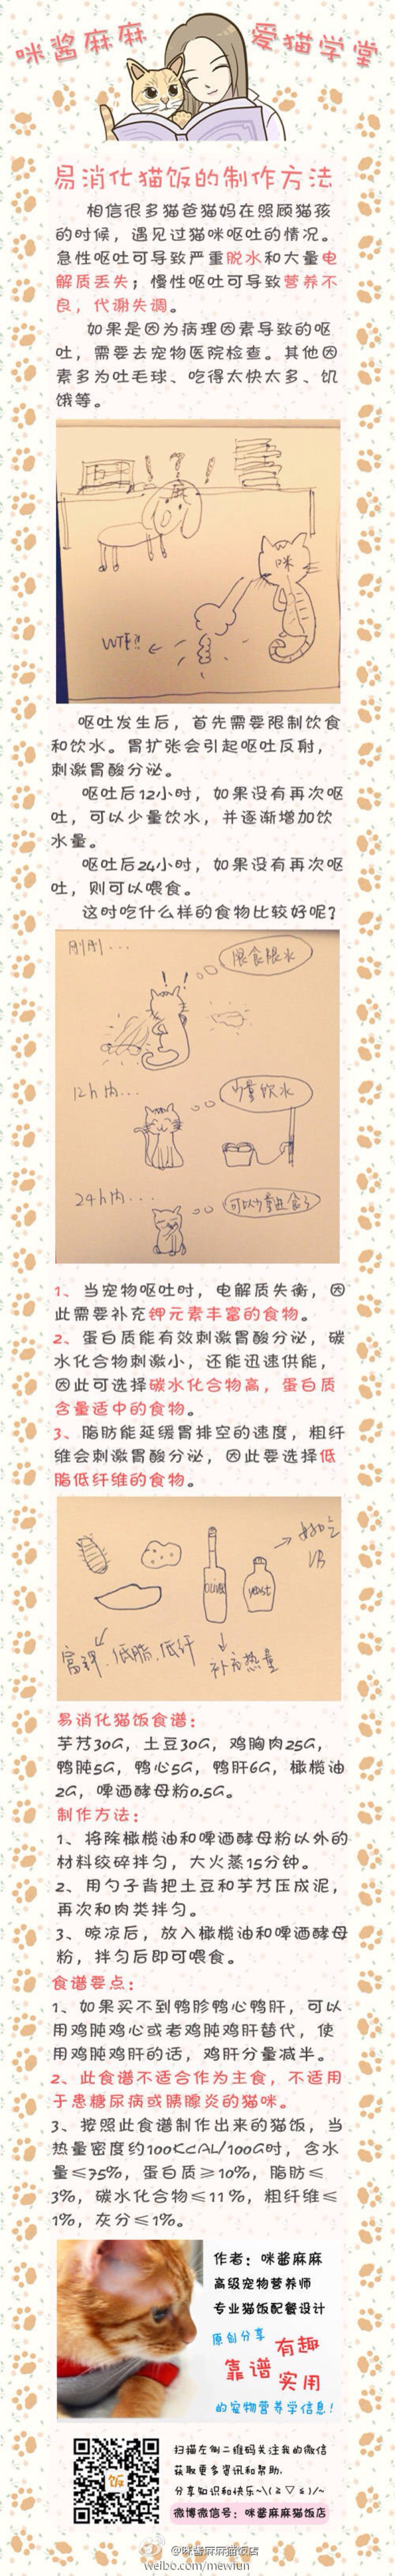 咪酱麻麻 爱猫学堂
易消化猫饭的制作方法
相信很多猫爸猫妈在照顾猫孩
的时候，遇见过猫咪呕吐的情况。
急性呕吐可导致严重脱水和大量电
解质丢失；慢性呕吐可导致营养不
良，代谢失调。
如果是因为病理因素导致的呕
吐，需要去宠物医院检查。其他因
素多为吐毛球、吃得太快太多、饥
饿等。
! ? !
麻
咪
WTF!!
呕吐发生后，首先需要限制饮食
和饮水。胃扩张会引起呕吐反射，
刺激胃酸分泌。
呕吐后12小时，如果没有再次呕
吐，可以少量饮水，并逐渐增加饮
水量。
呕吐后24小时，如果没有再次呕
吐，则可以喂食。
这时吃什么样的食物比较好呢？
刚刚...
限食限水
12h内...
少量饮水
24h内...
可以少量进食了
1、当宠物呕吐时，电解质失衡，因
此需要补充钾元素丰富的食物。
2、蛋白质能有效刺激胃酸分泌，碳
水化合物刺激小，还能迅速供能，
因此可选择碳水化合物高，蛋白质
含量适中的食物。
3、脂肪能延缓胃排空的速度，粗纤
维会刺激胃酸分泌，因此要选择低
脂低纤维的食物。
OLIVE
yeast
VB
富钾、低脂、低纤
补充热量
易消化猫饭食谱：
芋艿30G，土豆30G，鸡胸肉25G，
鸭肫5G，鸭心5G，鸭肝6G，橄榄油
2G，啤酒酵母粉0.5G。
制作方法：
1、将除橄榄油和啤酒酵母粉以外的
材料绞碎拌匀，大火蒸15分钟。
2、用勺子背把土豆和芋艿压成泥，
再次和肉类拌匀。
3、晾凉后，放入橄榄油和啤酒酵母
粉，拌匀后即可喂食。
食谱要点：
1、如果买不到鸭胗鸭心鸭肝，可以
用鸡肫鸡心或者鸡肫鸡肝替代，使
用鸡肫鸡肝的话，鸡肝分量减半。
2、此食谱不适合作为主食，不适用
于患糖尿病或胰腺炎的猫咪。
3、按照此食谱制作出来的猫饭，当
热量密度约100KCAL/100G时，含水
量≤75%，蛋白质≥10%，脂肪≤
3%，碳水化合物≤11%，粗纤维≤
1%，灰分≤1%。
作者：咪酱麻麻
高级宠物营养师
专业猫饭配餐设计
原创分享 有趣
靠谱 实用
的宠物营养学信息！
饭
扫描左侧二维码关注我的微信
获取更多资讯和帮助，
分享知识和快乐~\(≥▽≤)/~
微博微信号：咪酱麻麻猫饭店
@咪酱麻麻猫饭店
weibo.com/mewiun